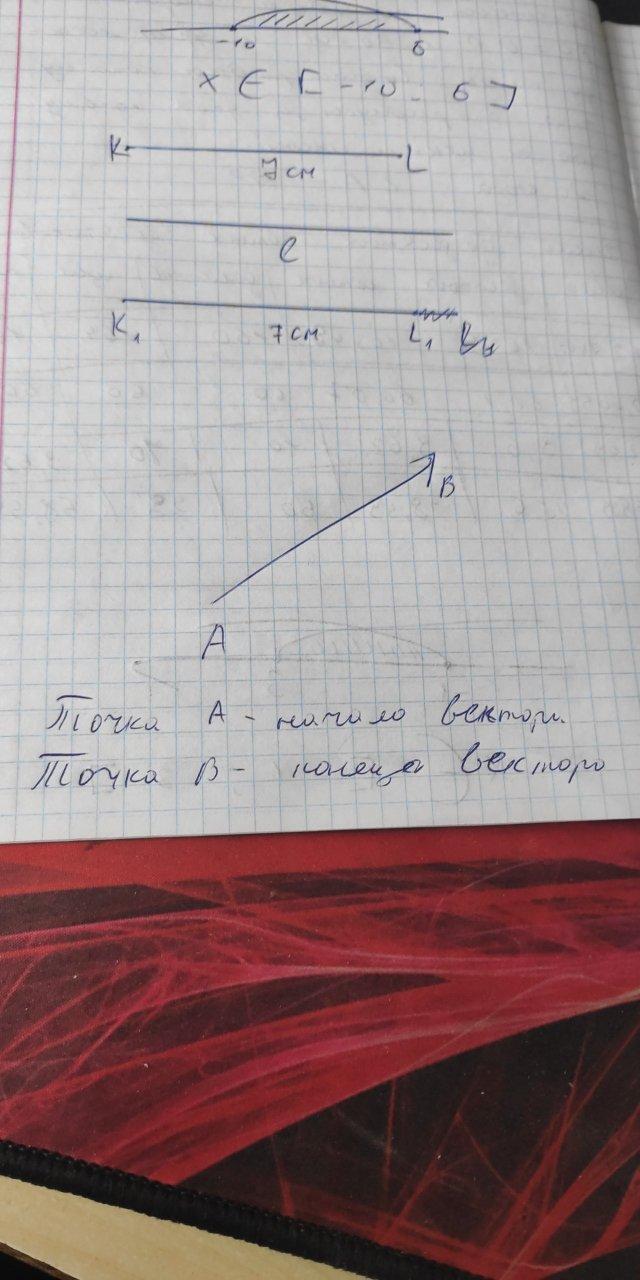 -10 6
x ∈ [ -10 ; 6 ]
K 7 см L
l
K₁ 7 см L₁
B
A
Точка A - начало вектора
Точка B - конец вектора